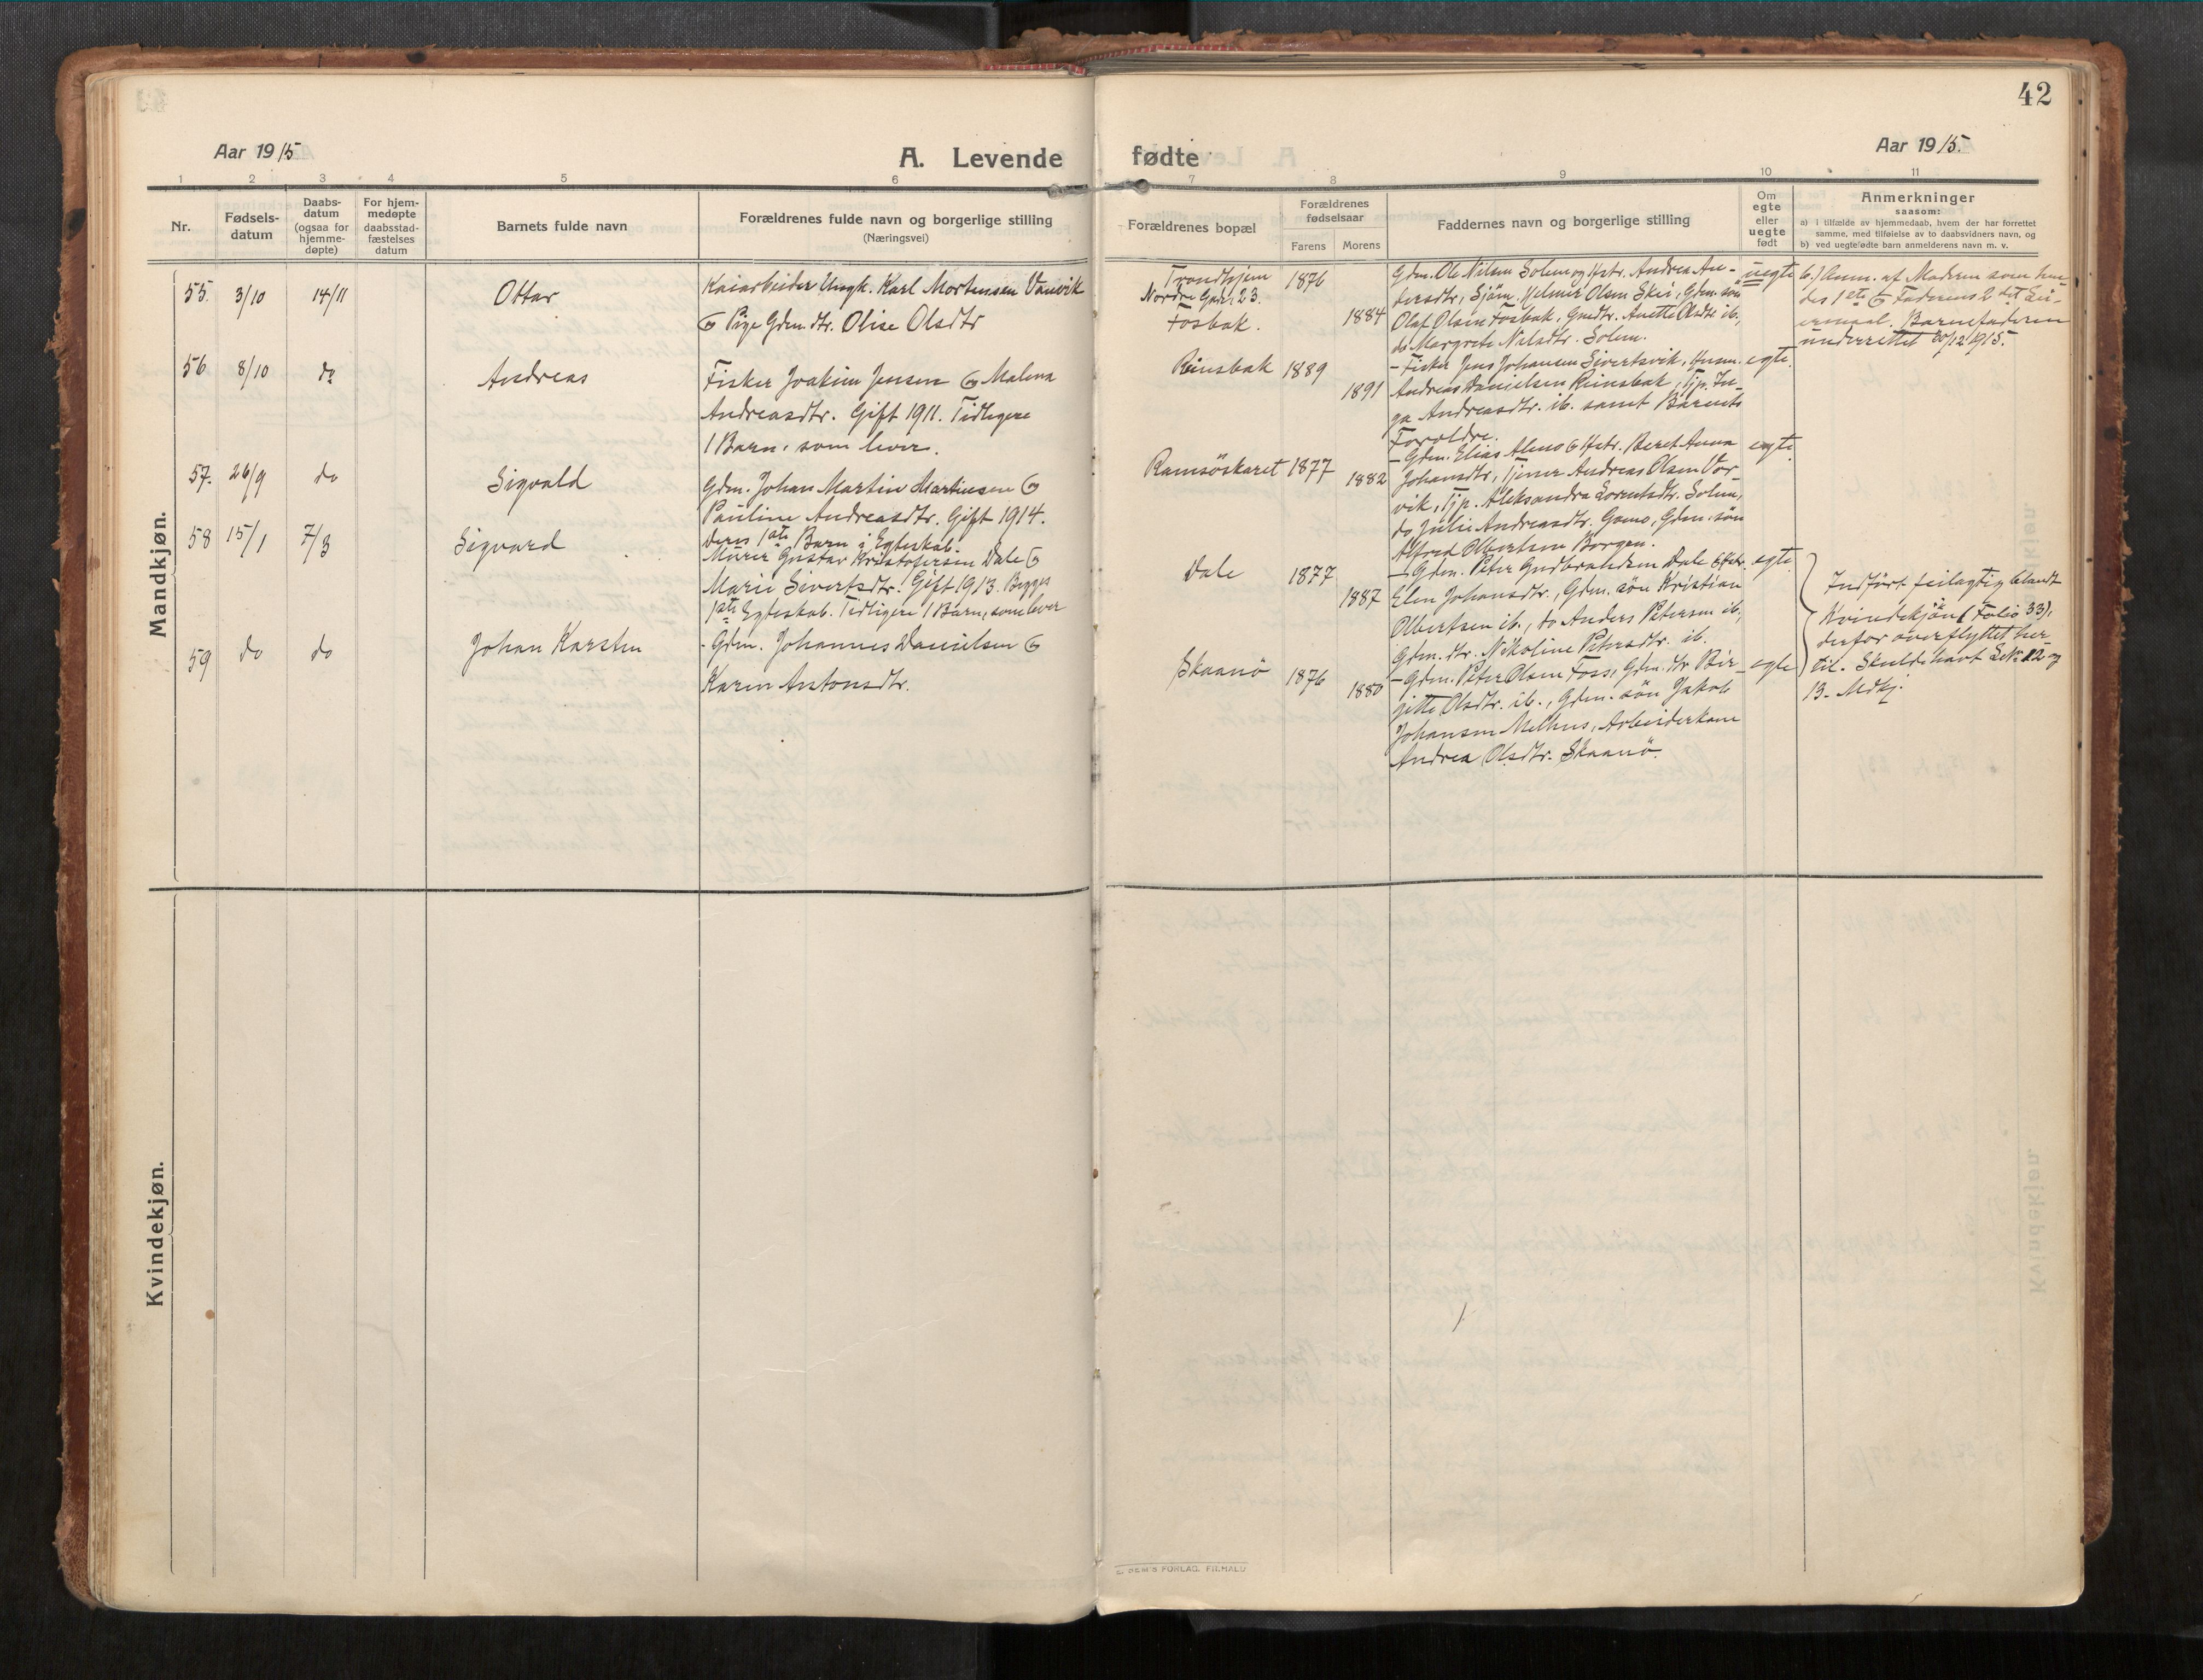 42
Aar 1915
A. Levende
fødte
Aar 1915.
1 2 3 4 5 6 7 8 9 10 11
Nr.
Fødsels-
datum
Daabs-
datum
(ogsaa for
hjemme-
døpte)
For hjem-
medøpte
daabsstad-
fæstelses
datum
Barnets fulde navn
Forældrenes fulde navn og borgerlige stilling
(Næringsvei)
Forældrenes bopæl
Forældrenes
fødselsaar
Farens
Morens
Faddernes navn og borgerlige stilling
Om
egte
eller
uegte
født
Anmerkninger
saasom:
a) i tilfælde av hjemmedaab, hvem der har forrettet
samme, med tilføielse av to daabsvidners navn, og
b) ved uegtefødte barn anmelderens navn m. v.
Mandkjøn.
55. 3/10 14/11 Ottar
Kaiarbeider Ungk. Karl Mortensen Vanvik
og Pige Gdm. dtr. Olise Olsdtr
Trondhjem
Nordre Gade, 23.
Fosbak.
1876
1884
Gdm. Ole Nilsen Solem og Hstr. Andrea An-
dersdtr, Sjøm. Helmer Olsen Skei, Gdm. søn
Olaf Olsen Fosbak, Gmdtr. Anette Olsdtr ib,
do Margrete Nilsdtr. Solem.
uegte
b.) Anm. af Moderen som hen-
des 1ste og Faderens 2det Lei-
ermaal. Barnefaderen
underrettet 20/12 1915.
56 8/10 do Andreas
Fisker Joakim Jensen og Malena
Andreasdtr. Gift 1911. Tidligere
1 Barn, som lever.
Reinsbak 1889
1891
- Fisker Jens Johansen Sivertsvik, Husm.
Andreas Danielsen Reinsbak, Tjp. In-
ga Andreasdtr. ib. samt Barnets
Foreldre.
egte.
57. 26/9 do Sigvald
Gdm. Johan Martin Martinsen og
Pauline Andreasdtr. Gift 1914.
Deres 1ste Barn i Egteskab.
Ramsöskaret 1877
1882
- Gdm. Elias Almo og Hstr. Beret Anna
Johansdtr, Tjener Andreas Olsen Vor-
vik, Tjp. Aleksandra Lorentsdtr. Solem,
do Julie Andreasdtr. Gomo, Gdm. søn
Alfred Olbertsen Borgen.
egte
58 15/1 7/3 Sigvard
Murer Gustav Kristofersen Dale og
Marie Sivertsdtr. Gift 1913. Begges
1ste Egteskab. Tidligere 1 Barn, som lever
Dale 1877
1887
- Gdm. Peter Gudbrandsen Dale og Hstr.
Elen Johansdtr., Gdm. søn Kristian
Olbertsen ib., do Anders Petersen ib,
Gdm. dtr. Nikoline Petersdtr. ib.
egte.
59 do do Johan Karsten
- Gdm. Johannes Danielsen og
Karen Antonsdtr.
Skaanö 1876
1880
- Gdm. Peter Olsen Foss, Gdm. dtr Bir-
gitte Olsdtr. ib., Gdm. søn Jakob
Johansen Melhus, Arbeiderkone
Andrea Olsdtr. Skaanö.
egte
Indført feilagtig blandt
Kvindekjön (Folio 33),
derfor overflyttet her-
til. Skulde havt No. 12 og
13. Mdkj.
Kvindekjøn.
SEM'S FORLAG. FR.HALD